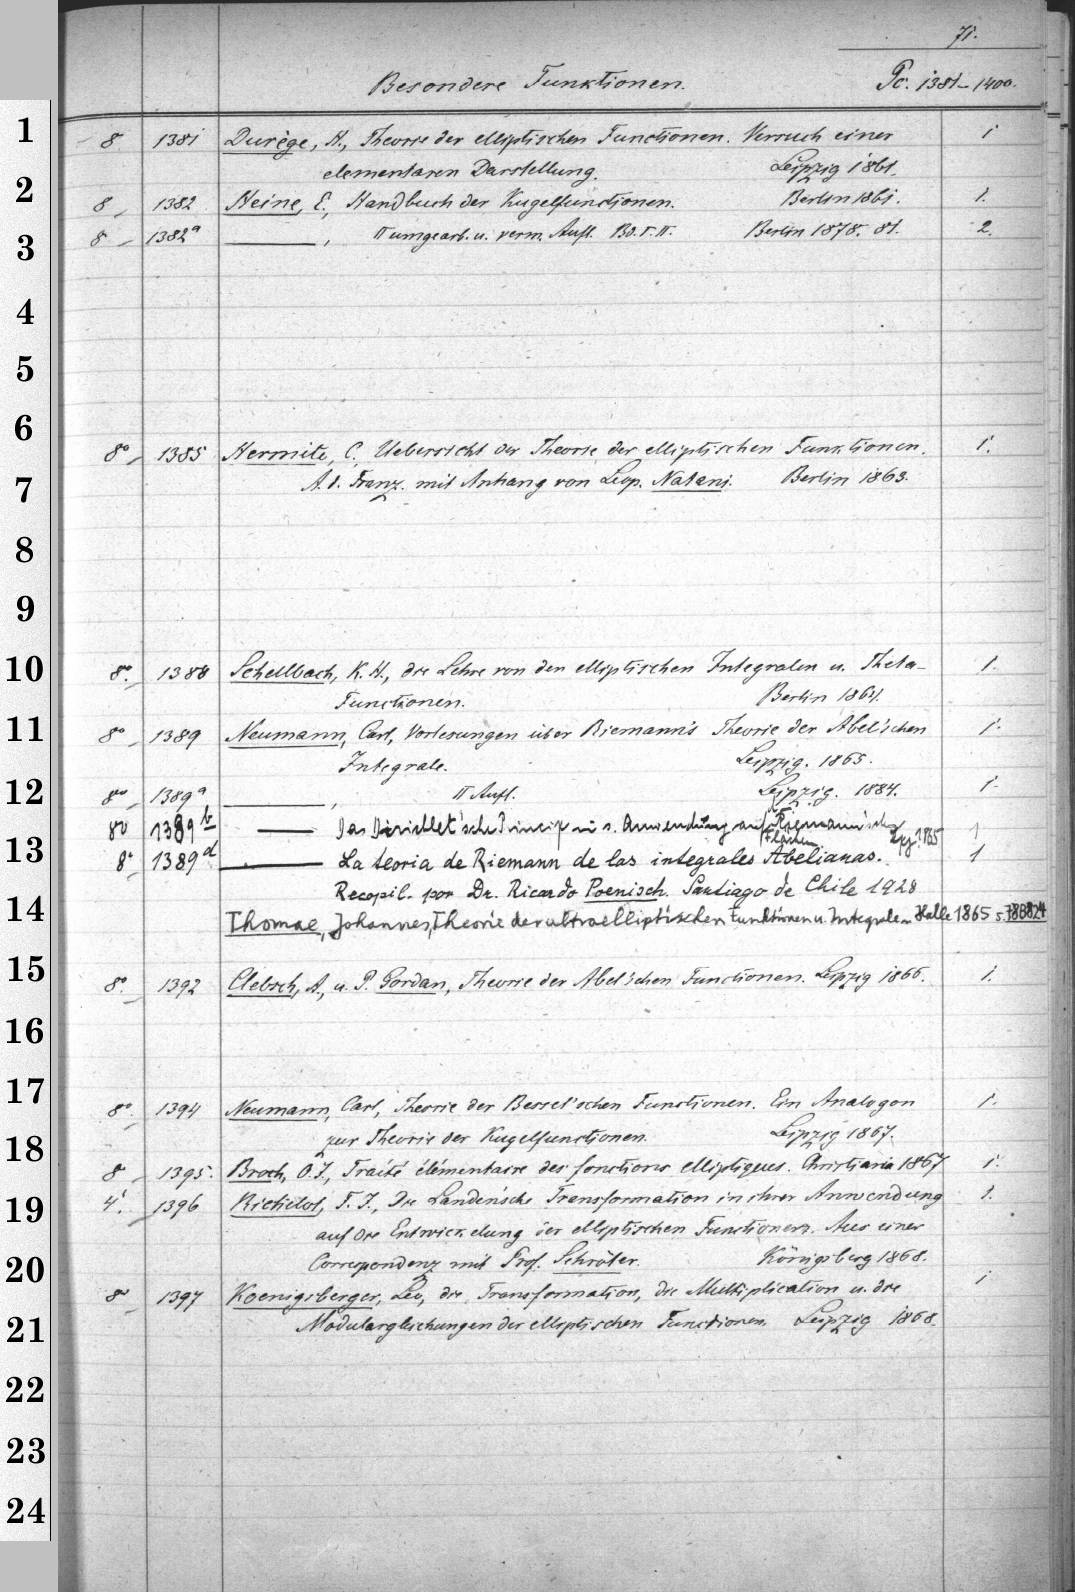 71.
Besondere Funktionen. Pc. 1381-1400.
1 8 1381 Durège, H., Theorie der elliptischen Functionen. Versuch einer 1
elementaren Darstellung. Leipzig 1861.
2 8 1382 Heine, E., Handbuch der Kugelfunctionen. Berlin 1861. 1.
3 8 1382a ———, II umgearb. u. verm. Aufl. Bd. I. II. Berlin 1878. 81. 2.
4
5
6
8o 1385 Hermite, C., Uebersicht der Theorie der elliptischen Funktionen. 1.
7 A. d. Franz. mit Anhang von Leop. Natani. Berlin 1863.
8
9
10 8o. 1388 Schellbach, K. H., die Lehre von den elliptischen Integralen u. Theta-
Functionen. Berlin 1864. 1.
11 8o 1389 Neumann, Carl, Vorlesungen über Riemann's Theorie der Abel'schen 1.
Integrale. Leipzig. 1865.
12 8o 1389a ———, II Aufl. Leipzig. 1884. 1.
8o 1389b ——— Das Dirichlet'sche Princip in s. Anwendung auf die Riemann'schen Flächen Lpz. 1865 1
13 8o 1389d ——— La teoria de Riemann de las integrales Abelianas. 1
Recopil. por Dr. Ricardo Poenisch. Santiago de Chile 1928
14 Thomae, Johannes, Theorie der ultraelliptischen Funktionen u. Integrale. Halle 1865 s.
15 8o. 1392 Clebsch, A., u. P. Gordan, Theorie der Abel'schen Functionen. Leipzig 1866. 1.
16
17 8o. 1394 Neumann, Carl, Theorie der Bessel'schen Functionen. Ein Analogon 1.
18 zur Theorie der Kugelfunctionen. Leipzig 1867.
8 1395. Broch, O. J., Traité élémentaire des fonctions elliptiques. Christiania 1867 1.
19 4o. 1396 Richelot, F. J., Die Landen'sche Transformation in ihrer Anwendung 1.
auf die Entwickelung der elliptischen Functionen. Aus einer
20 Correspondenz mit Prof. Schröter. Königsberg 1868.
8o 1397 Koenigsberger, Leo, die Transformation, die Multiplication u. die 1
21 Modulargleichungen der elliptischen Functionen. Leipzig 1868.
22
23
24